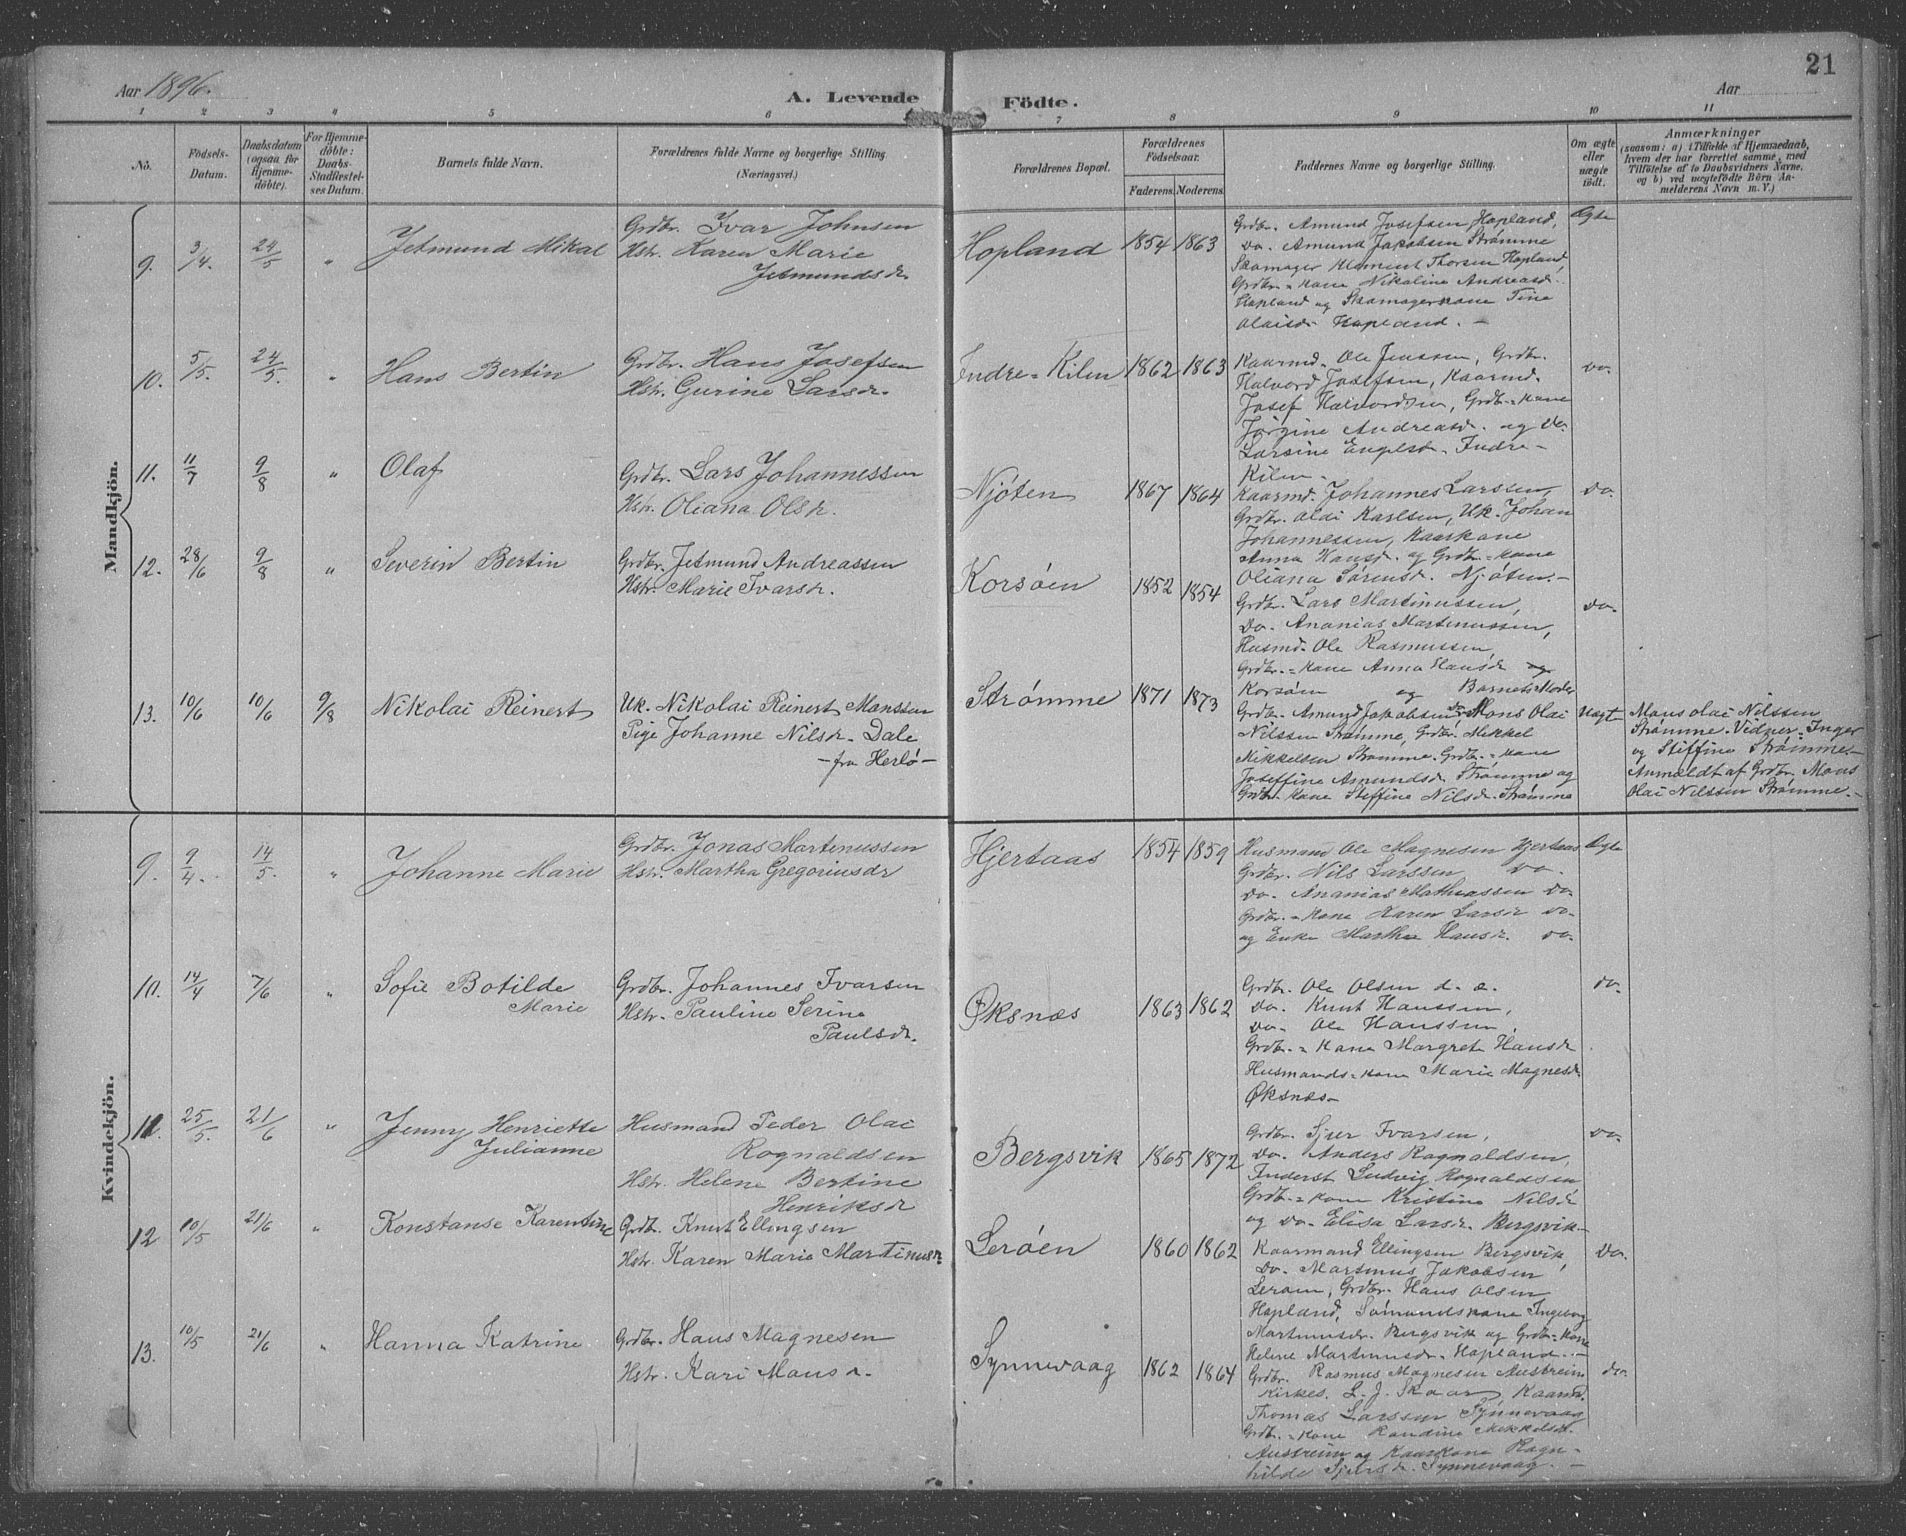 21
Aar 1896.
A. Levende Födte.
Aar
1 2 3 4 5 6 7 8 9 10 11
No.
Födsels-
Datum.
Daabsdatum
(ogsaa for
Hjemme-
döbte).
For Hjemme-
döbte:
Daabs-
Stadfæstel-
ses Datum.
Barnets fulde Navn.
Forældrenes fulde Navne og borgerlige Stilling
(Næringsvei.)
Forældrenes Bopæl.
Forældrenes
Födselsaar.
Faderens. Moderens.
Faddernes Navne og borgerlige Stilling.
Om ægte
eller
uægte
födt.
Anmærkninger
(saasom: a) i Tilfælde af Hjemmedaab,
hvem der har forrettet samme, med
Tilföielse af to Daabsvidners Navne,
og b) ved uægtefödte Börn An-
melderens Navn m. V.)
Mandkjön.
9. 3/4. 24/5 " Jetmund Mikal
Grdbr. Ivar Johnsen
Hstr. Karen Marie
Jetmundsdr.
Hopland 1854 1863
Grdbr. Amund Josefsen Hopland,
Do. Amund Jakobsen Strømme
Skomager Klement Thorsen Hopland,
Grdbr.=kone Nikoline Andreasd.
Hopland og Skomagerkone Tine
Olaisdr. Hopland. —
Ægte
10. 5/5. 24/5. " Hans Bertin
Grdbr. Hans Josefsen
Hstr. Gurine Larsdr.
Indre=Kilen 1862 1863
Kaarmd. Ole Jenssen, Grdbr.
Halvord Josefsen, Kaarmd.
Josef Halvordsen, Grdbr.=kone
Jørgine Andreasd. og Do.
Larsine Engelsdr. Indre-
Kilen.
Do.
11. 11/7 9/8 " Olaf
Grdbr. Lars Johannessen
Hstr. Oliana Olsdr.
Njøten 1867 1864
Kaarmd. Johannes Larssen,
Grdbr. Olai Karlsen, Uk. Johan
Johannessen, Kaarkone
Anna Hansdr. og Grdbr.=kone
Oliana Sørensdr. Njøten.—
Do.
12. 28/6 9/8 " Severin Bertin
Grdbr. Jetmund Andreassen
Hstr. Marie Ivarsdr.
Korsøen 1852 1854
Grdbr. Lars Martinussen,
Do. Ananias Martinussen,
Husmd. Ole Rasmussen,
Grdbr.=kone Anna Hansdr og
Korsøen og Barnets Moder
Do.
13. 10/6 10/6 9/8 Nikolai Reinert
Uk. Nikolai Reinert Monssen
Pige Johanne Nilsdr. Dale
— fra Herlø —
Strømme 1871 1873
Grdbr. Amund Jakobsen, Do. Mons Olai
Nilssen Strømme, Grdbr. Mikkel
Mikkelsen Strømme. Grdbr.=kone
Joseffine Amundsdr. Strømme og
Grdbr. kone Steffine Nilsdr. Strømme
Uægt
Mons Olai Nilssen
Strømme. Vidner: Inger
og Stiffine Strømme.—
Anmeldt af Grdbr. Mons
Olai Nilssen Strømme.—
Kvindekjön.
9. 9/4. 14/5. " Johanne Marie
Grdbr. Jonas Martinussen
Hstr. Martha Gregoriusdr
Hjertaas 1854 1859
Husmand Ole Magnesen Hjertaas
Grdbr. Nils Larssen Do.
Do. Ananias Mathiassen Do.
Grdbr.=kone Karen Larsdr Do.
og Enke Martha Hansdr. Do.
Ægte
10. 14/4 7/6 " Sofie Botilde
Marie
Grdbr. Johannes Ivarsen
Hstr. Pauline Serine
Paulsdr.
Øksnæs 1863 1862
Grdbr. Ole Olsen d. æ.
Do. Knut Hanssen,
Do. Ole Hanssen,
Grdbr.=kone Margrete Hansdr
Husmands=kone Marie Magnesdr.
Øksnæs—
Do.
11. 25/5. 21/6 " Jenny Henriette
Julianne
Husmand Peder Olai
Rognaldsen
Hstr. Helene Bertine
Henriksdr
Bergsvik 1865 1872
Grdbr. Sjur Ivarsen,
Do. Anders Rognaldsen,
Inderst Ludvig Rognaldsen
Grdbr.=kone Kristine Nilsdr
og Do. Elisa Larsdr. Bergsvik—
Do.
12 10/5 21/6 " Konstanse Karentine
Grdbr. Knut Ellingsen
Hstr. Karen Marie Martinusdr.
Lerøen 1860 1862
Kaarmand Ellingsen Bergsvik,
Do. Martinus Jakobsen
Lerøen, Grdbr. Hans Olsen
Hopland, Sømandskone Ingeborg
Martinusdr. Bergsvik og Grdbr.=kone
Helene Martinusdr. Hopland.—
Do.
13. 10/5 21/6 " Hanna Katrine
Grdbr. Hans Magnesen
Hstr. Kari Monsdr.
Synnevaag 1862 1864
Grdbr. Rasmus Magnesen Austreim
Kirkes. L. J. Skaar, Kaarmd.
Thomas Larssen Synnevaag
Grdbr.=kone Randine Mikkelsdr.
Austreim og Kaarkone Ragn-
hilde Sjursdr. Synnevaag. —
do.